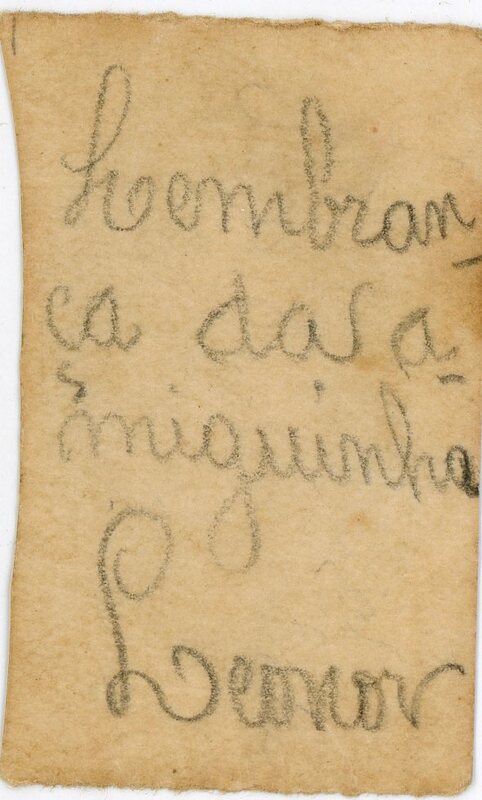 Lembran_
ça das a_
miguinha
Leonor